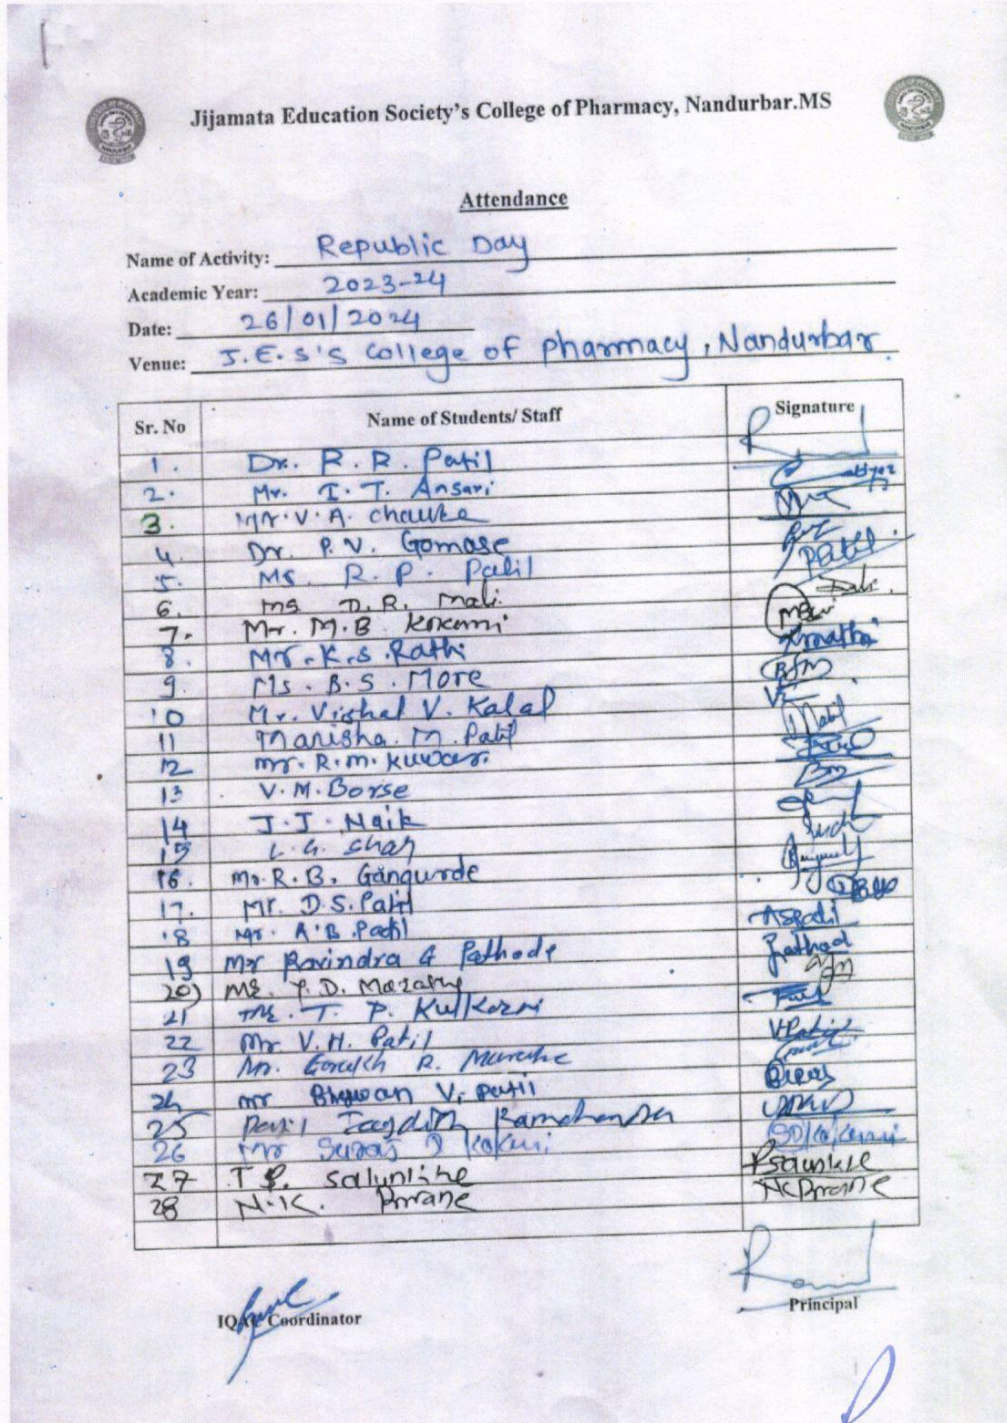 Jijamata Education Society's College of Pharmacy, Nandurbar.MS
Attendance
Name of Activity: Republic Day
Academic Year: 2023-24
Date: 26/01/2024
Venue: J.E.S'S College of pharmacy, Nandurbar.
Sr. No Name of Students/ Staff Signature
1. Dr. R. R. Patil
2. Mr. I. T. Ansari
3. Mr. V. A. Chauke
4. Dr. P. V. Gomase
5. Ms. R. P. Patil Patil
6. Ms D. R. Mali
7. Mr. M.B Kokani
8. Mr. K.S. Rathi
9. Ms. B.S. More BSM
10 Mr. Vishal V. Kalal
11 Manisha. M. Patil
12 Mr. R.M. Kuwar.
13 V.M. Borse
14 J.J. Naik
15 L. G. Shah
16. Mr. R.B. Gangurde
17. Mr. D.S. Patil
18 Mr. A.B. Patil
19 Mr Ravindra G Pathode
20) P. D.
21 T. P. Kulkarni
22 Mr. V.H. Patil
23 Mr. R. Marathe
24 Mr V. Patil
25 Patil Ramchandra
26 Mr Suraj Kokani
27 T P. Salunkhe
28 N.K.
IQAC Coordinator Principal